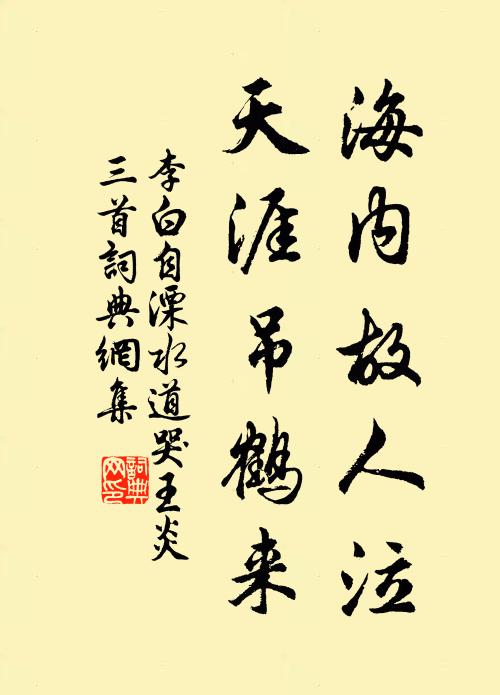 海内故人泣
天涯吊鶴来
李白自溧水道哭王炎
三首詞典網集
詞典
网印